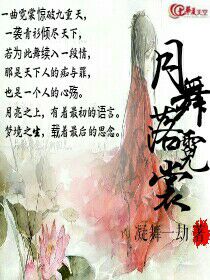 一曲霓裳惊破九重天，
一袭青衫倾尽天下，
若为此舞续入一段情，
那是天下人的痴与罪，
也是一个人的心殇。
月亮之上，有着最初的语言。
梦境之生，载着最后的思念。
月舞落霓裳
凝舞一劫 著